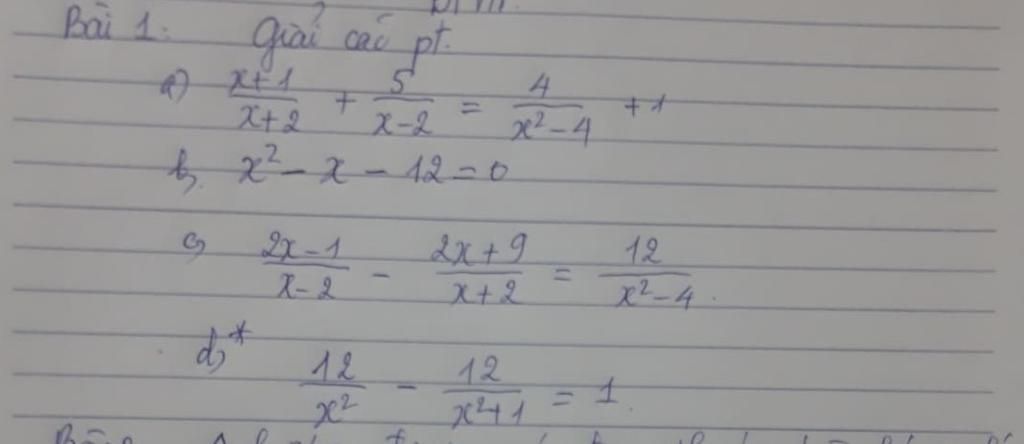 Bài 1: Giải các pt.
a) \frac{x+1}{x+2} + \frac{5}{x-2} = \frac{4}{x^2-4} + 1
b, x^2 - x - 12 = 0
c, \frac{2x-1}{x-2} - \frac{2x+9}{x+2} = \frac{12}{x^2-4}.
d,* \frac{12}{x^2} - \frac{12}{x^2+1} = 1.